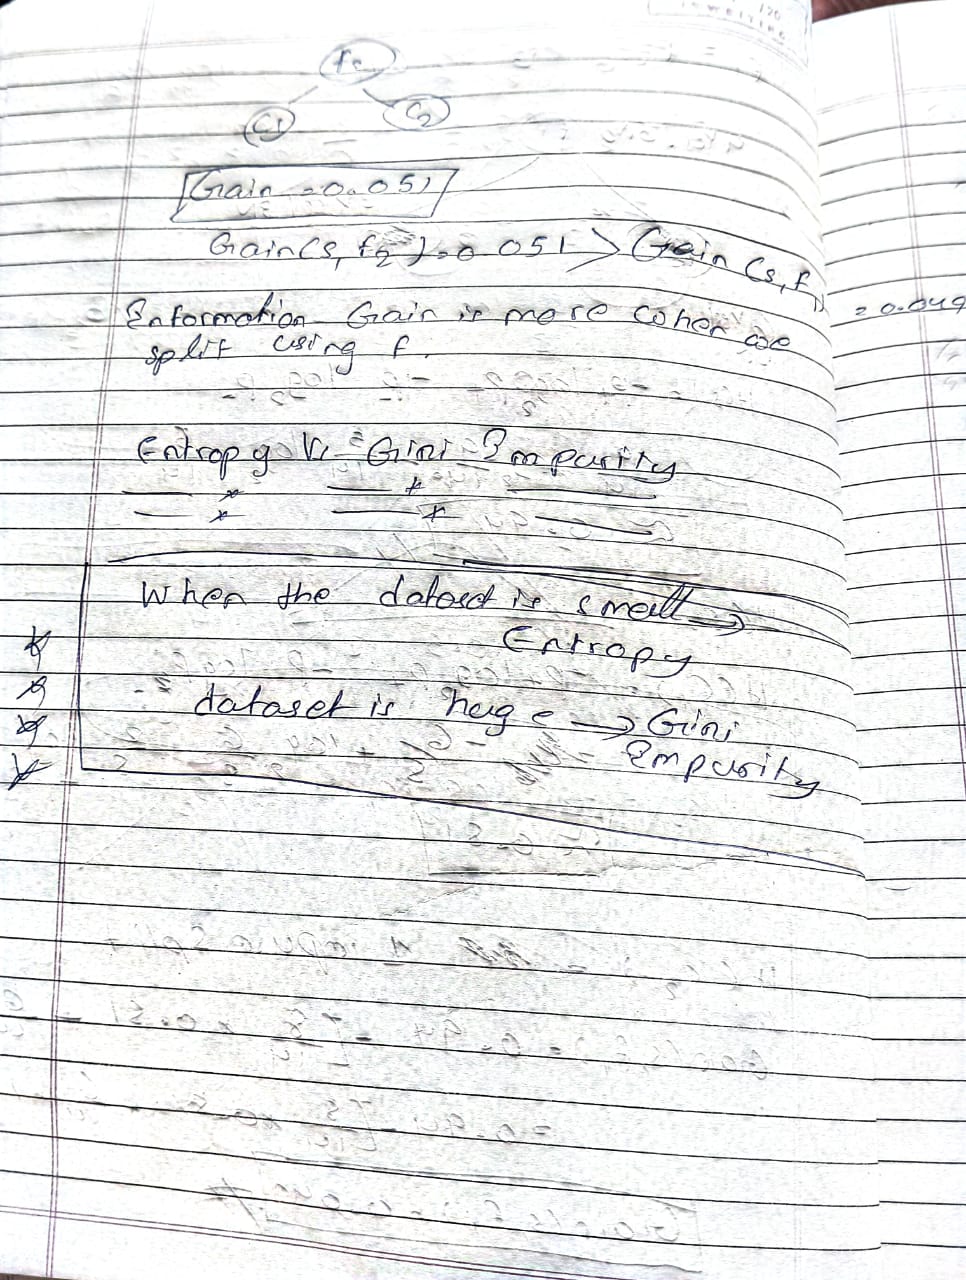 C1
C2
Gain = 0.051
Gain(S, f2) = 0.051 > Gain(S, f1) = 0.049
= Information Gain is more when we
split using f.
Entropy Vs Gini Impurity
When the dataset is small →
Entropy
dataset is huge → Gini
Impurity